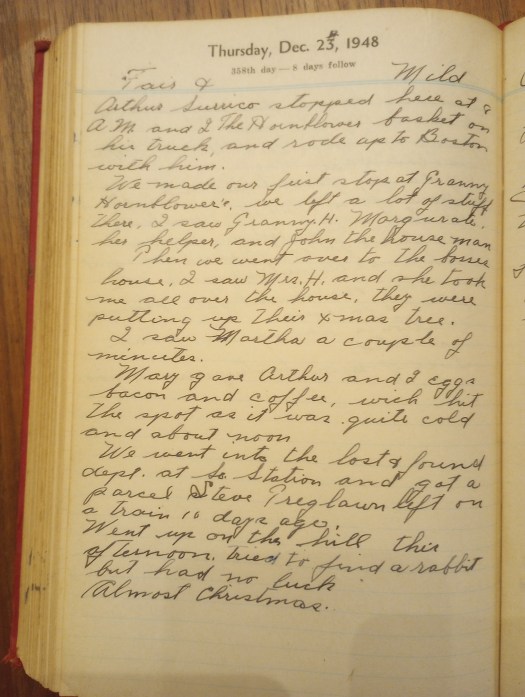 Thursday, Dec. 23, 1948
358th day — 8 days follow
Fair & Mild
Arthur Surrico stopped here at 9
A.M. and I The Hornblower basket on
his truck, and rode up to Boston
with him.
We made our first stop at Granny
Hornblower's, we left a lot of stuff
there, I saw Granny H. Margurate,
her helper, and John the house man
Then we went over to the bosses
house, I saw Mrs. H. and she took
me all over the house, they were
putting up their x-mas tree.
I saw Martha a couple of
minutes.
Mary gave Arthur and I eggs
bacon and coffee, wich hit
the spot as it was quite cold
and about noon
We went into the lost & found
dept. at So. Station and got a
parcel Steve Preglawn left on
a train 10 days ago.
Went up on the hill this
afternoon, tried to find a rabbit
but had no luck
Almost Christmas.